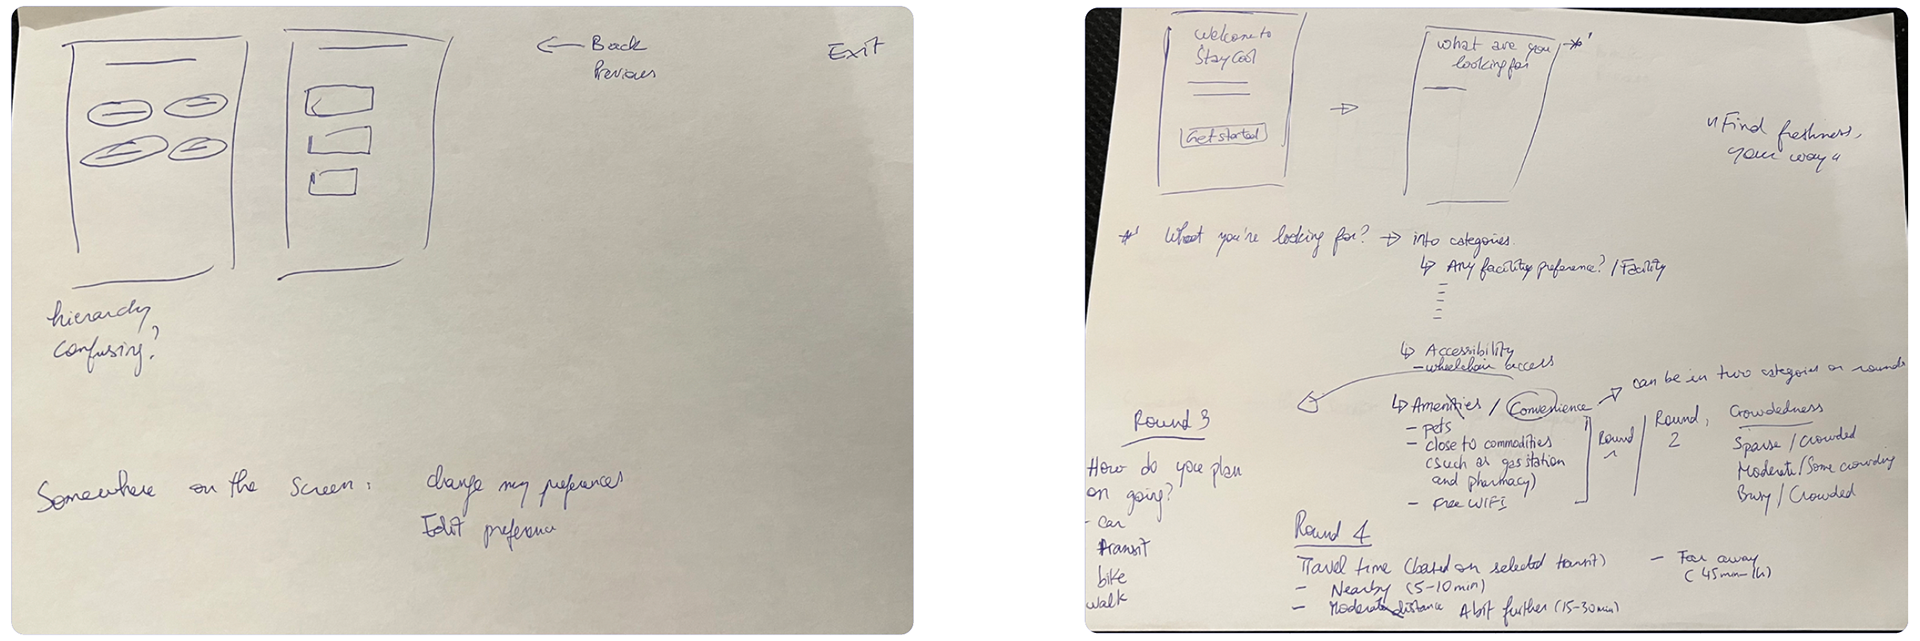 ← Back
Previous
Exit
hierarchy
confusing?
Somewhere on the screen:
change my preferences
Edit preference
Welcome to
Stay Cool
Get started
→
what are you
looking for
*1
"Find freshness,
your way"
*1 What you're looking for? → into categories.
↳ Any facility preference? / Facility
↳ Accessibility
- wheelchair access
↳ Amenities / Convenience → can be in two categories or rounds
- pets
- close to commodities
(such as gas station
and pharmacy)
- Free WIFI
Round 1
Round 2
Crowdedness
Sparse / Crowded
Moderate / Some crowding
Busy / Crowded
Round 3
How do you plan
on going?
- car
transit
bike
walk
Round 4
Travel time (based on selected transit)
- Nearby (5-10min)
- Moderate distance A bit further (15-30min)
- Far away
(45min-1h)